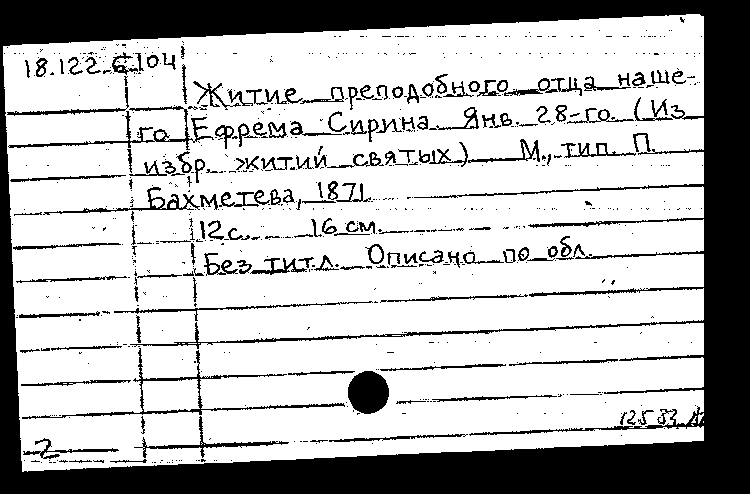 18.122.6.104
Житие преподобного отца наше-
го Ефрема Сирина. Янв. 28-го. (Из
избр. житий святых) М., тип. П.
Бахметева, 1871
12 с. 16 см.
Без титл. Описано по обл.
2